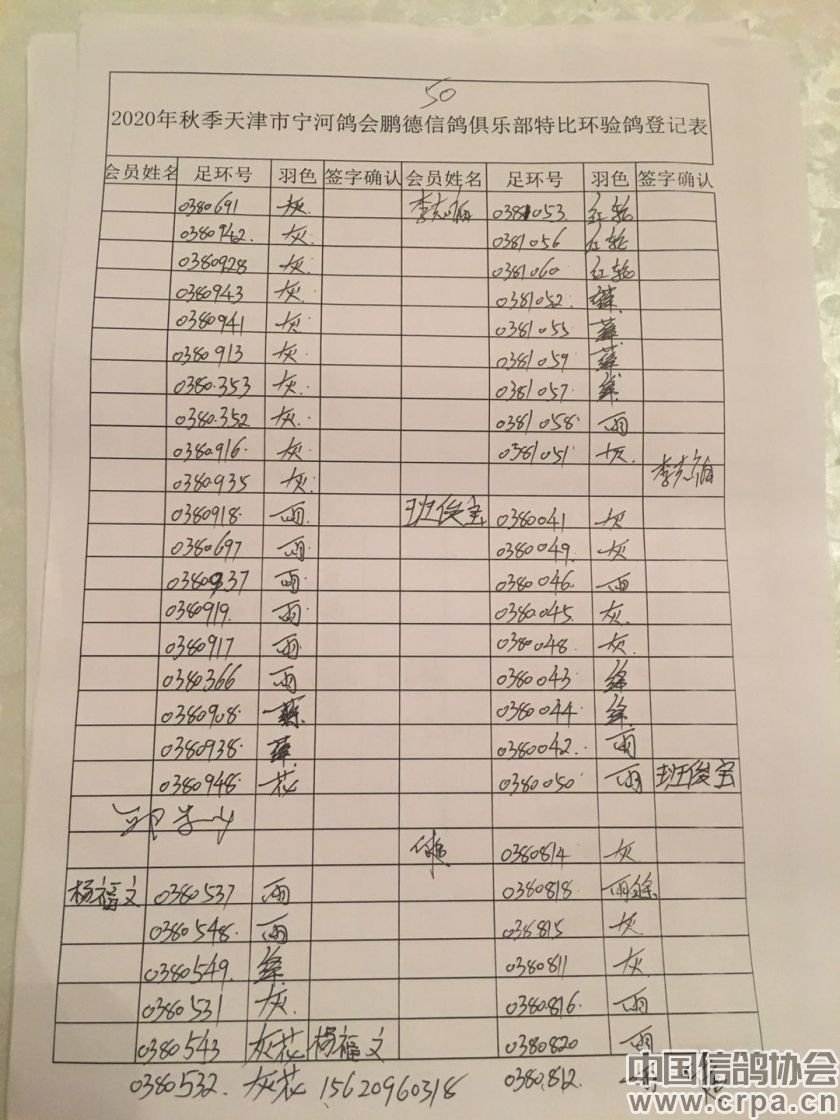 50
2020年秋季天津市宁河鸽会鹏德信鸽俱乐部特比环验鸽登记表
会员姓名 足环号 羽色 签字确认 会员姓名 足环号 羽色 签字确认
0380691 灰 0381053 红轮
0380942 灰 0381056 红轮
0380928 灰 0381060 红轮
0380943 灰 0381052
0380941 灰 0381055
0380913 灰 0381059
0380353 灰 0381057
0380352 灰 0381058 雨
0380916 灰 0381051 灰
0380935 灰
0380918 雨 班俊宝 0380041 灰
0380697 雨 0380049 灰
0380937 雨 0380046 雨
0380919 雨 0380045 灰
0380917 雨 0380048 灰
0380366 雨 0380043 绛
0380908 0380044 绛
0380938 0380042 雨
0380948 花 0380050 雨 班俊宝
0380814 灰
杨福文 0380537 雨 0380818 雨绛
0380548 雨 038815 灰
0380549 绛 0380811 灰
0380531 灰 0380816 雨
0380543 灰花 杨福文 0380820 雨
0380532 灰花 15620960318 0380812
中国信鸽协会
www.crpa.cn